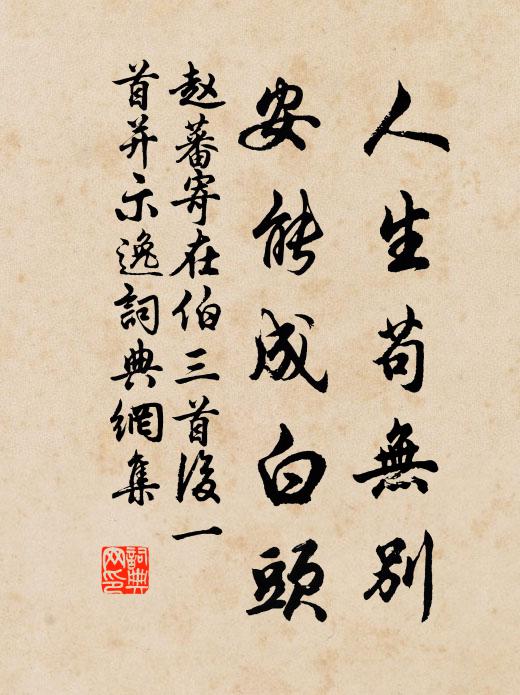 人生苟無別
安能成白頭
赵蕃寄在伯三首後一
首并示逸詞典網集
詞典网印